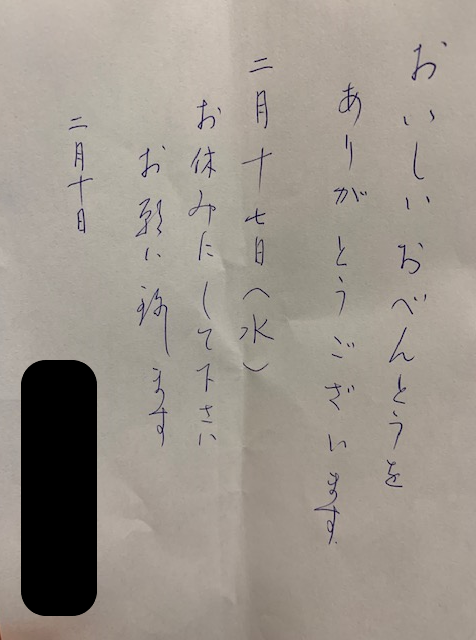 おいしいおべんとうを
ありがとうございます
二月十七日(水)
お休みにして下さい
お願い致します
二月十日